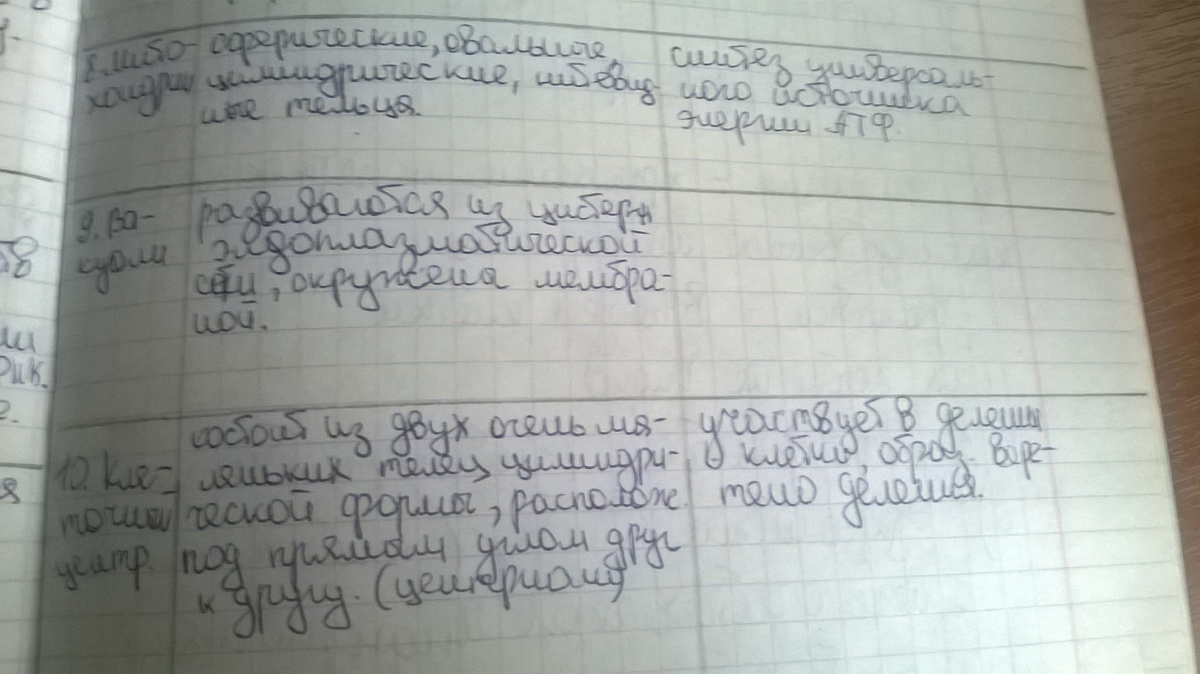 8. мито-
хондрии
сферические, овальные,
цилиндрические, нитевид
ные тельца.
синтез универсаль-
ного источника
энергии АТФ.
9. ва-
куоли
развиваются из цистерн
эндоплазматической
сети, окружена мембра-
ной.
10. Кле-
точный
центр.
состоит из двух очень ма-
леньких телец цилиндри-
ческой формы, располож.
под прямым углом друг
к другу. (центриоли)
участвует в делении
клетки, образ. вере-
тено деления.
58
ш
рик.
2.
я